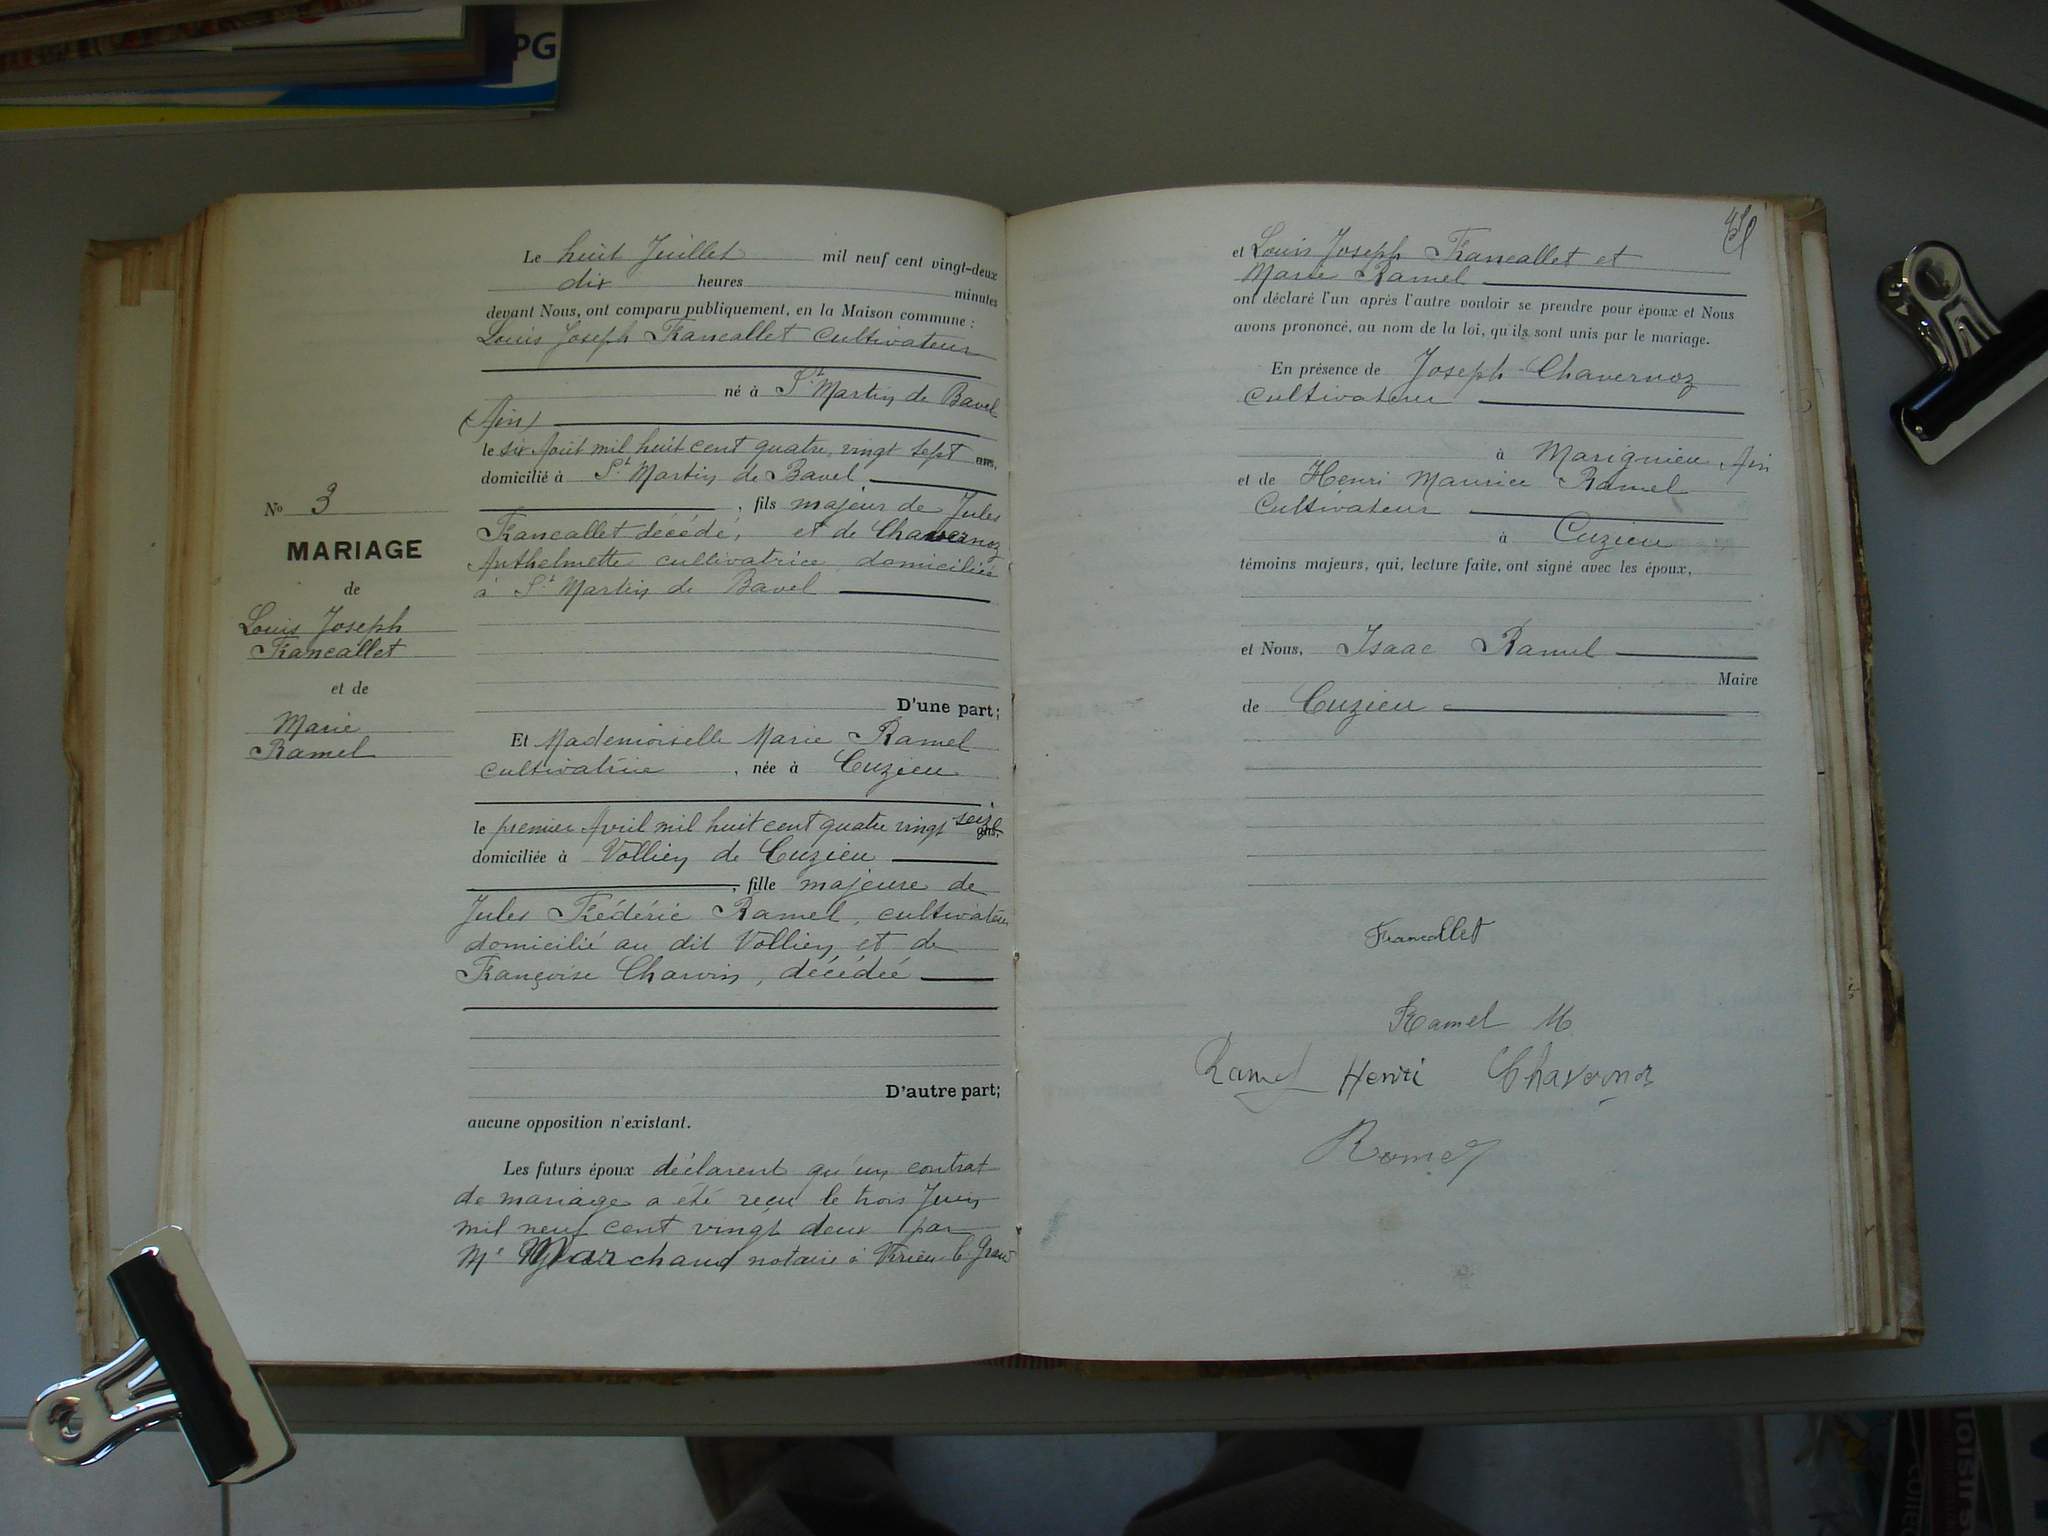 PG
Le huit Juillet mil neuf cent vingt-deux
dix heures minutes
devant Nous, ont comparu publiquement, en la Maison commune :
Louis Joseph Francallet Cultivateur
né à St Martin de Bavel
(Ain)
le six Août mil huit cent quatre vingt sept ans,
domicilié à St Martin de Bavel
, fils majeur de Jules
Francallet décédé, et de Chavernoz
Anthelmette cultivatrice domiciliée
à St Martin de Bavel
D'une part;
No 3
MARIAGE
de
Louis Joseph
Francallet
et de
Marie
Ramel
Et Mademoiselle Marie Ramel
cultivatrice , née à Cuzieu
le premier Avril mil huit cent quatre vingt seize ans,
domiciliée à Vollien de Cuzieu
, fille majeure de
Jules Frédéric Ramel, cultivateur
domicilié au dit Vollien et de
Françoise Charvin, décédée
D'autre part;
aucune opposition n'existant.
Les futurs époux déclarent qu'un contrat
de mariage a été reçu le trois Juin
mil neuf cent vingt deux par
Me Marchand notaire à Virieu le Grand
et Louis Joseph Francallet et
Marie Ramel
ont déclaré l'un après l'autre vouloir se prendre pour époux et Nous
avons prononcé, au nom de la loi, qu'ils sont unis par le mariage.
En présence de Joseph Chavernoz
cultivateur
à Marignieu Ain
et de Henri Maurice Ramel
Cultivateur
à Cuzieu
témoins majeurs, qui, lecture faite, ont signé avec les époux,
et Nous, Isaac Ramel
Maire
de Cuzieu
Francallet
Ramel M
Ramel Henri Chavernoz
Ramel